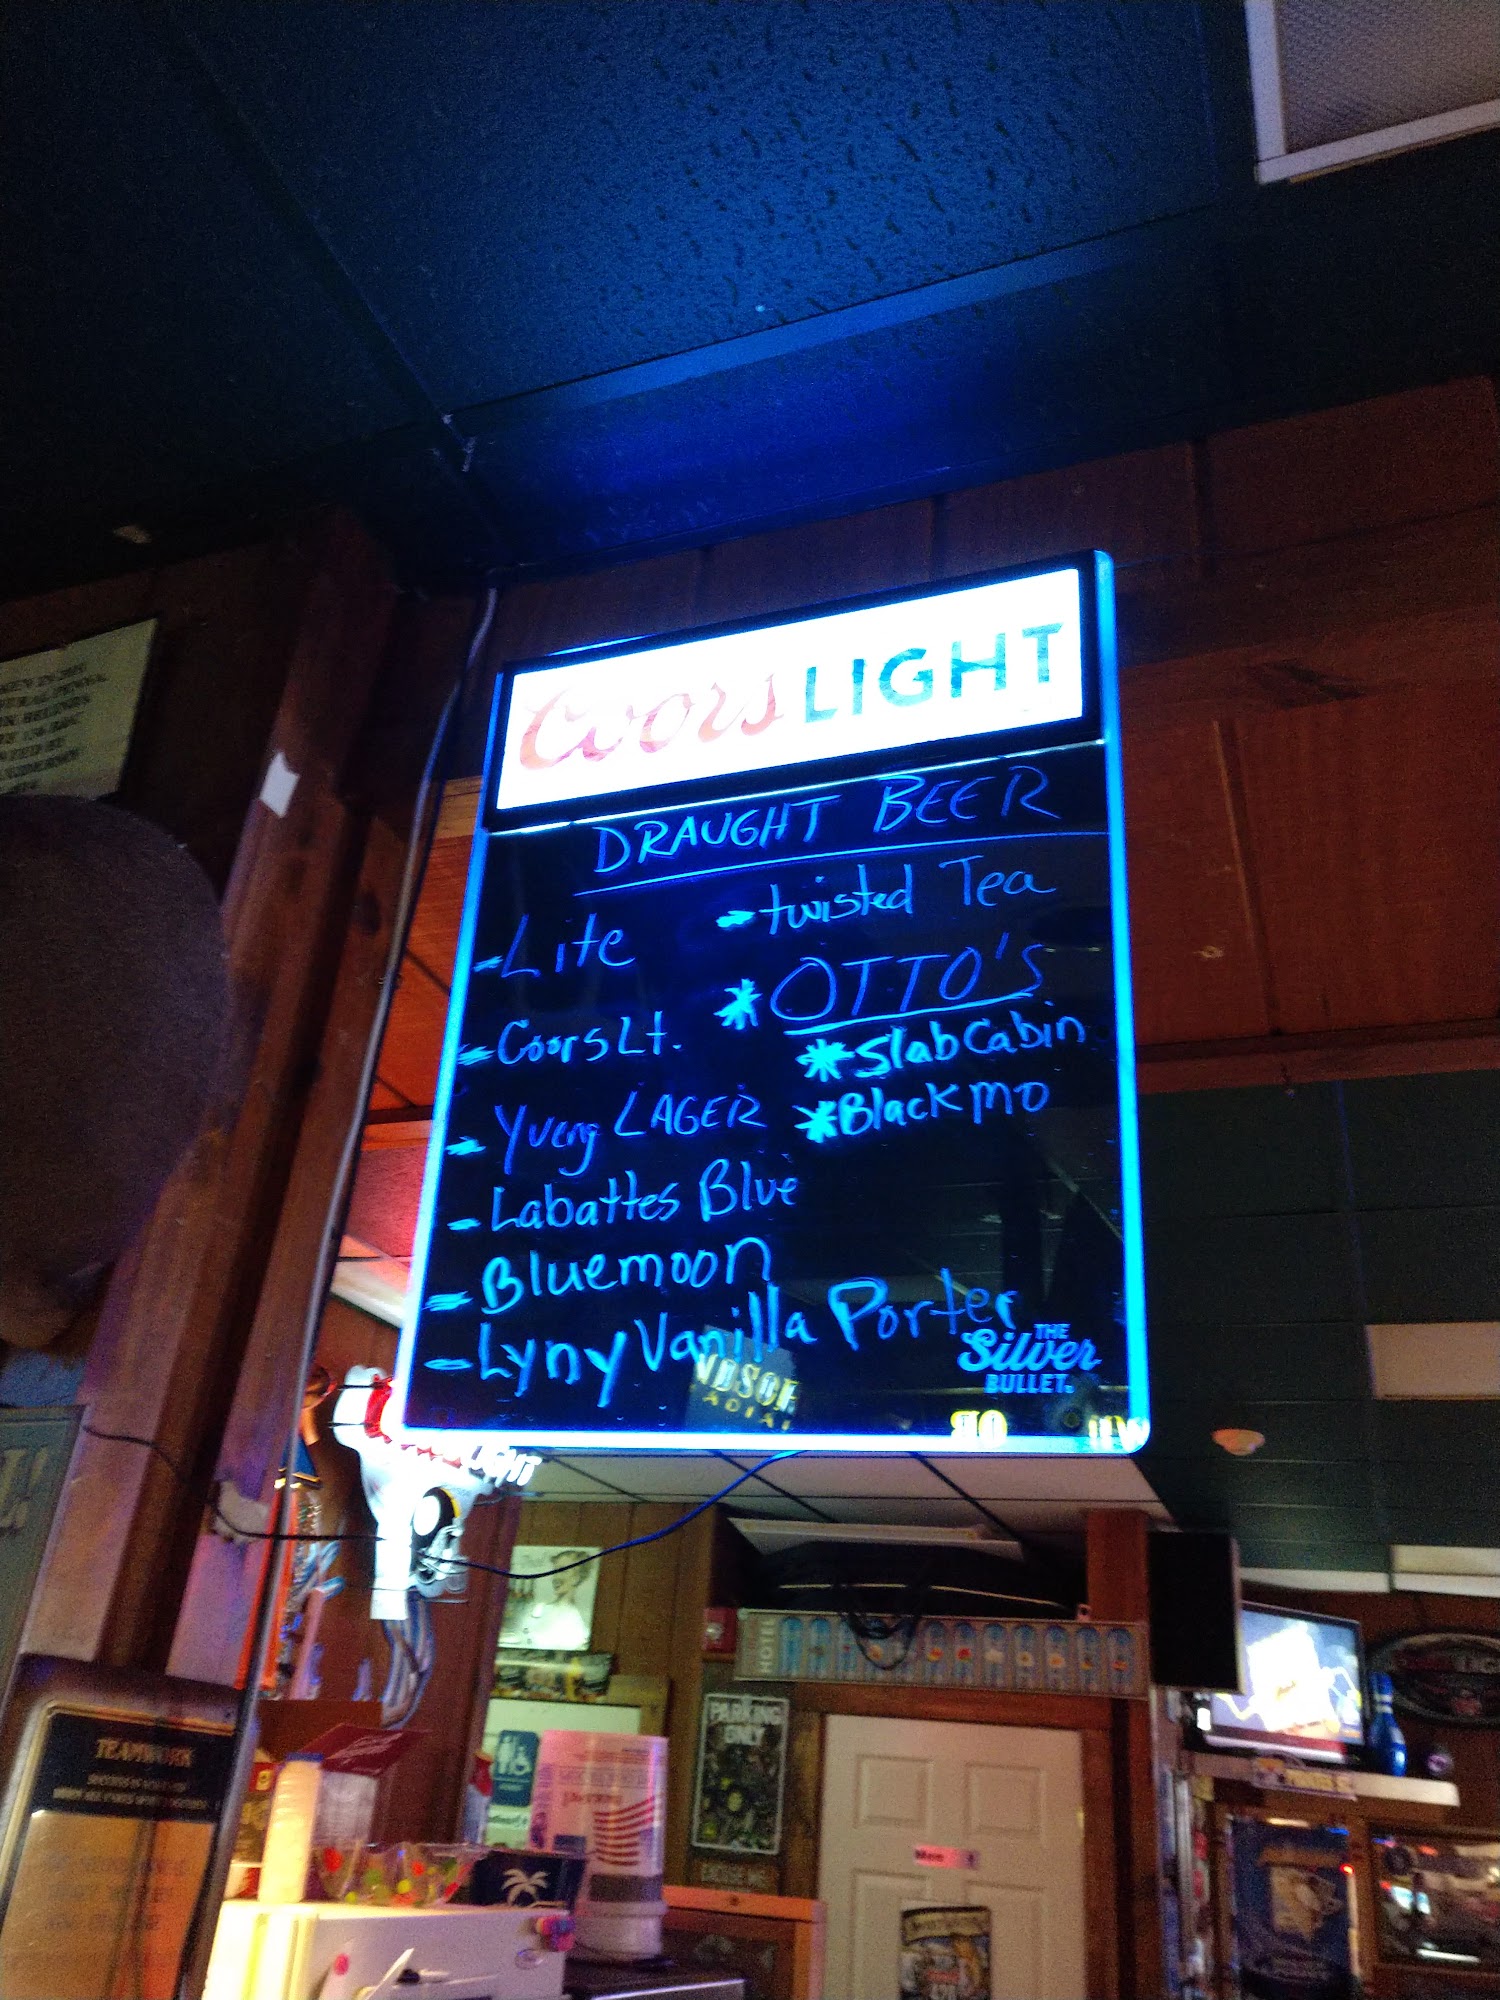 Coors LIGHT
DRAUGHT BEER
- Lite
- Coors Lt.
- Yueng LAGER
- Labattes Blue
- Bluemoon
- Lyny Vanilla Porter
- twisted Tea
* OTTO'S
* Slab Cabin
* Black mo
THE
Silver
BULLET.
LIGHT
HOTEL
PARKING
ONLY
TEAMWORK
Men